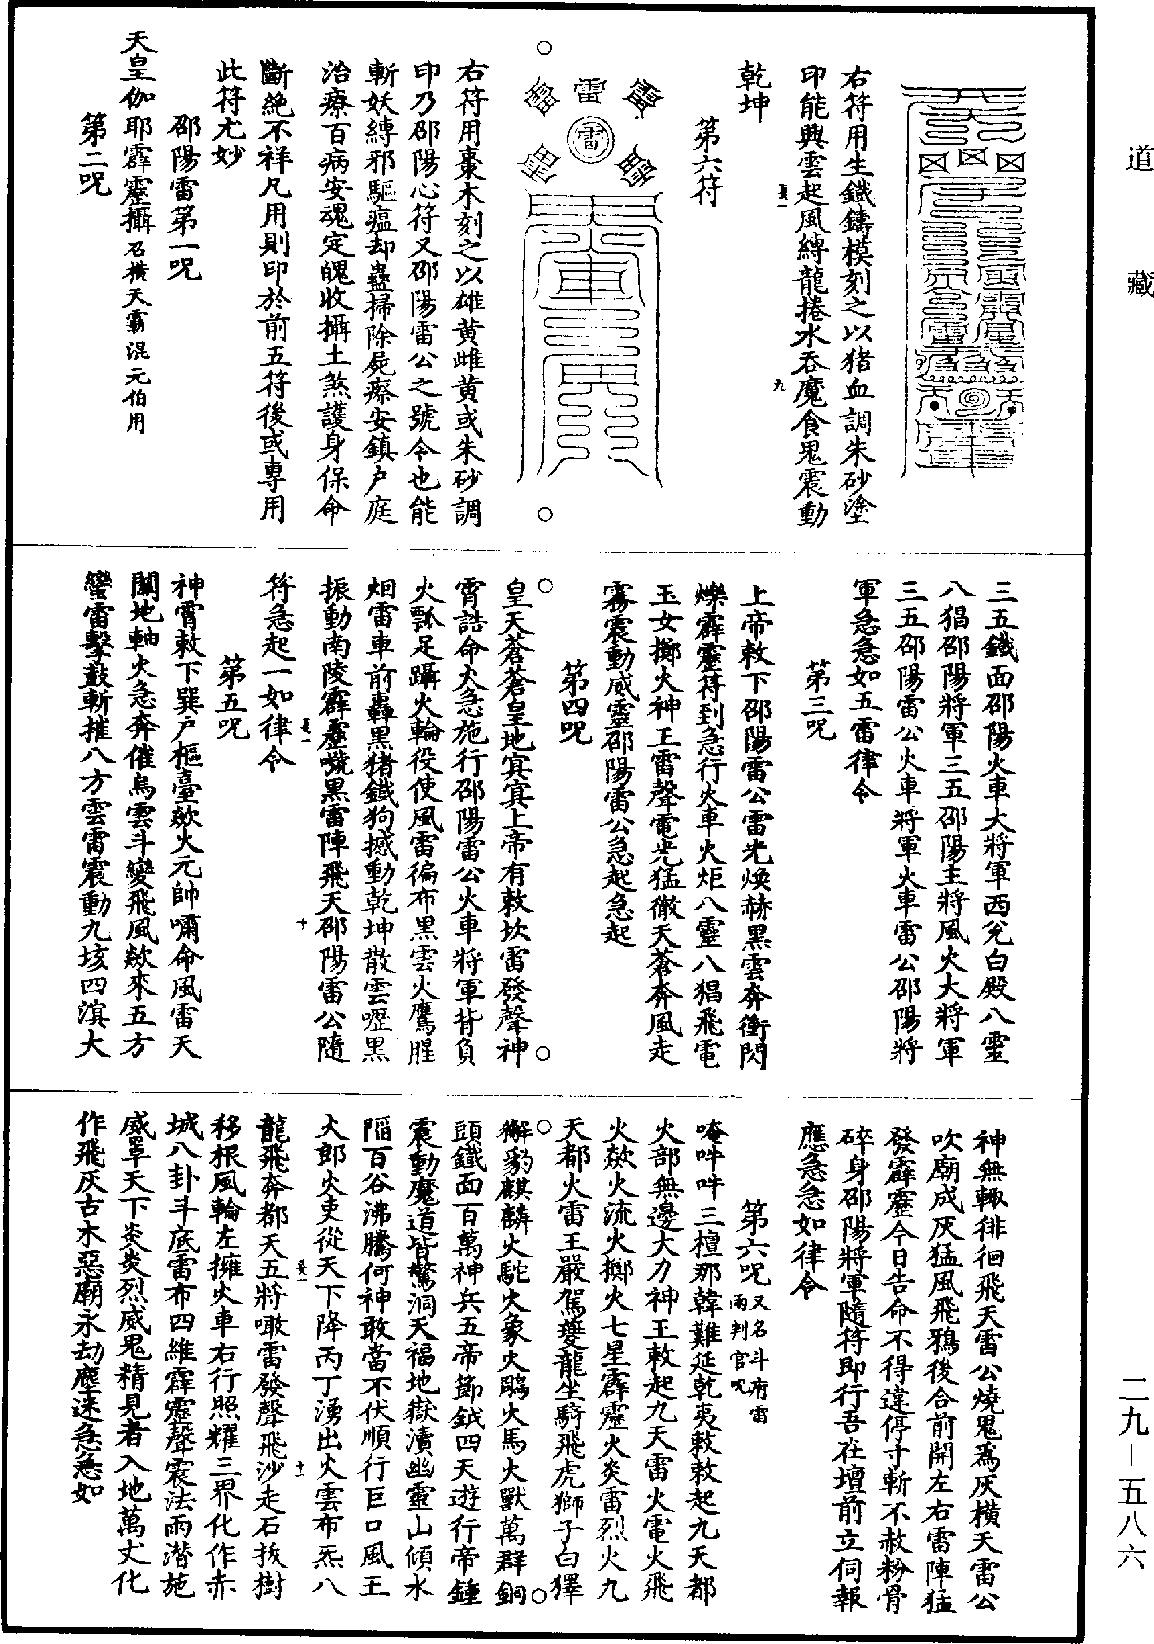 道藏
二九—五八六
右符用生鐵鑄模刻之以猪血調朱砂塗
印能興雲起風縛龍捲水吞魔食鬼震動
乾坤
第六符
雷
雷
右符用棗木刻之以雄黃雌黃或朱砂調
印乃邵陽心符又邵陽雷公之號令也能
斬妖縛邪驅瘟却蠱掃除屍瘵安鎮戶庭
治療百病安魂定魄收攝土煞護身保命
斷絶不祥凡用則印於前五符後或專用
此符尤妙
邵陽雷第一呪
天皇伽耶霹靂攝召橫天霸混元伯用
第二呪
三五鐵面邵陽火車大將軍西兌白殿八靈
八猖邵陽將軍三五邵陽主將風火大將軍
三五邵陽雷公火車將軍火車雷公邵陽將
軍急急如五雷律令
第三呪
上帝敕下邵陽雷公雷光煥赫黑雲奔衝閃
爍霹靂符到急行火車火炬八靈八猖飛電
玉女擲火神王雷聲電光猛徹天蒼奔風走
霧震動威靈邵陽雷公急起急起
第四呪
皇天蒼蒼皇地寘寘上帝有敕坎雷發聲神
霄誥命火急施行邵陽雷公火車將軍背負
火瓢足躡火輪役使風雷徧布黑雲火鷹腥
烟雷車前轟黑猪鐵狗撼動乾坤散雲嚦黑
振動南陵霹靂號黑雷陣飛天邵陽雷公隨
符急起一如律令
第五呪
神霄敕下巽戶樞臺歘火元帥嘯命風雷天
關地軸火急奔催烏雲斗變飛風歘來五方
蠻雷擊鼓斬摧八方雲雷震動九垓四溟大
神無輒徘徊飛天雷公燒鬼爲灰橫天雷公
吹廟成灰猛風飛鴉後合前開左右雷陣猛
發霹靂今日告命不得違停寸斬不赦粉骨
碎身邵陽將軍隨符即行吾在壇前立伺報
應急急如律令
第六呪又名斗府雷雨判官呪
唵吽吽三檀那韓難延乾夷敕敕起九天都
火部無邊大力神王敕起九天雷火電火飛
火歘火流火擲火七星霹靂火炎雷烈火九
天都火雷王嚴駕夔龍坐騎飛虎獅子白獐
獬豹麒麟火駝火象火鵰火馬火獸萬群銅
頭鐵面百萬神兵五帝節鉞四天遊行帝鍾
震動魔道皆驚洞天福地嶽瀆幽靈山傾水
陷百谷沸騰何神敢當不伏順行巨口風王
火郎火吏從天下降丙丁湧出火雲布炁八
龍飛奔都天五將噉雷發聲飛沙走石拔樹
移根風輪左擁火車右行照耀三界化作赤
城八卦斗底雷布四維霹靂聲震法雨潛施
威罩天下炎炎烈威鬼精見者入地萬丈化
作飛灰古木惡廟永劫塵迷急急如